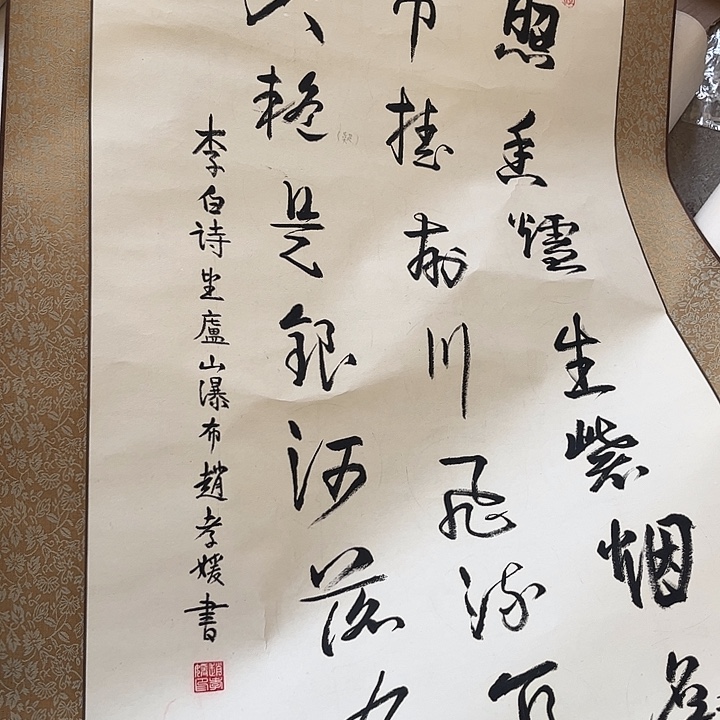 照香爐生紫烟
布挂前川飛流直
尺疑是銀河落九
李白诗望廬山瀑布趙孝媛書